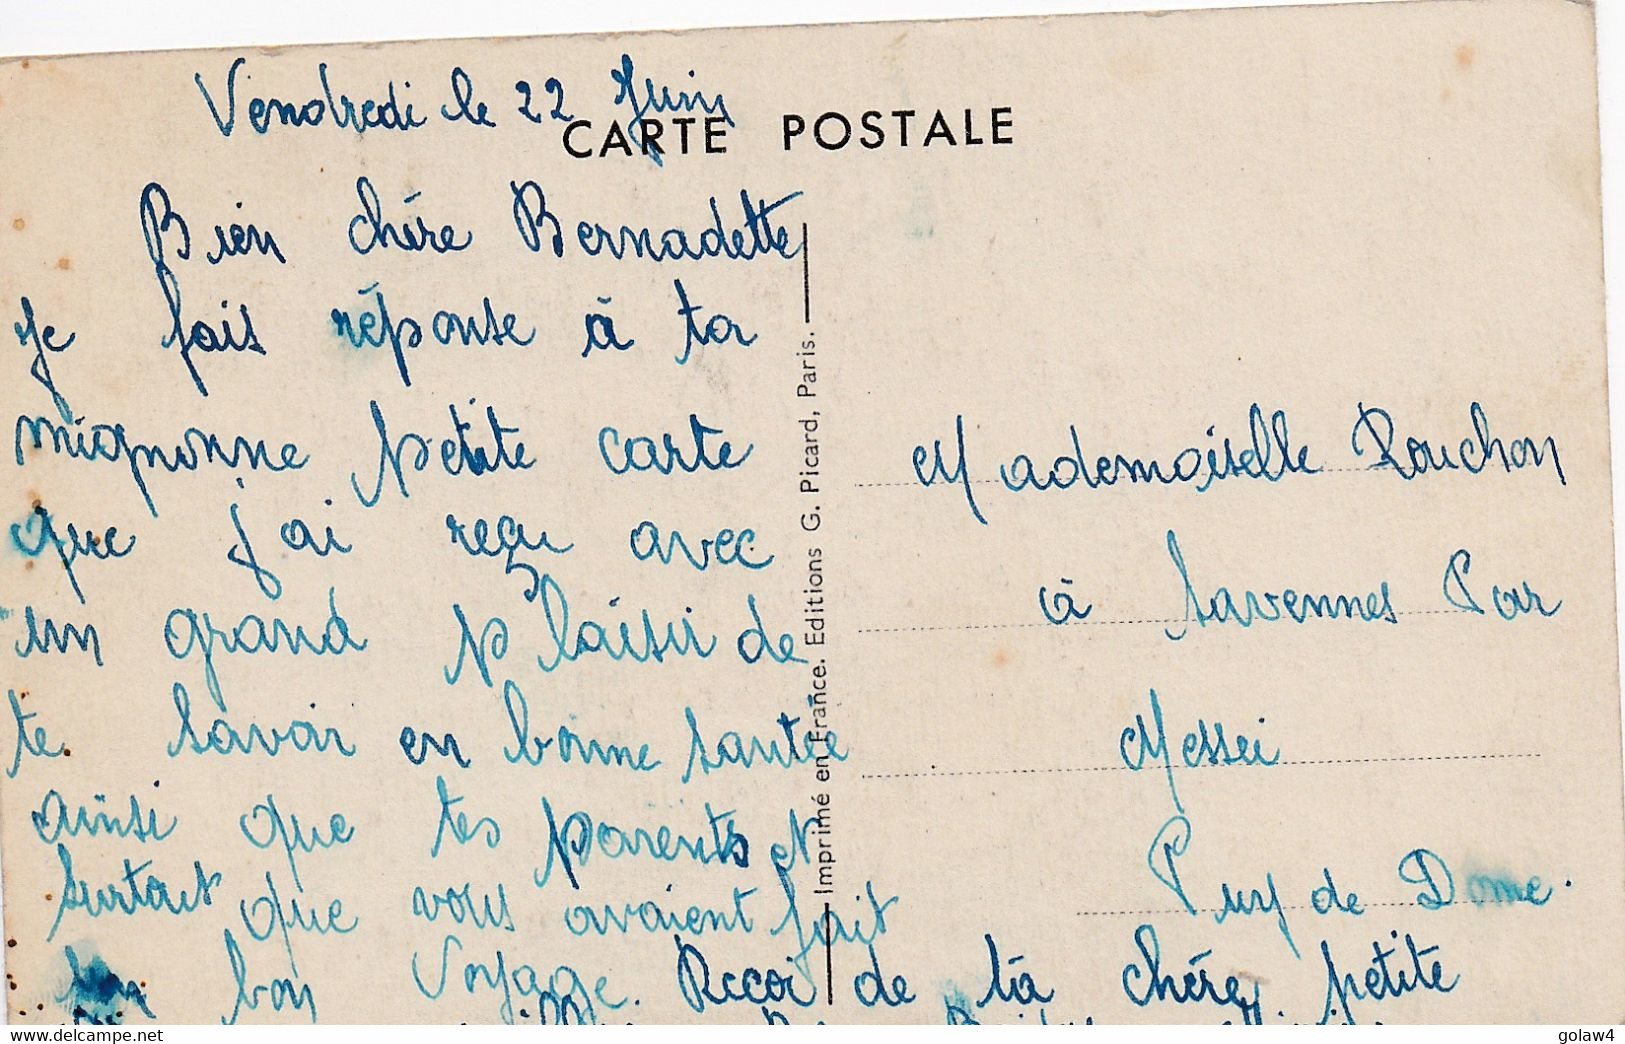 Vendredi le 22 Juin
CARTE POSTALE
Bien chère Bernadette
Je fais réponse à ta
mignonne petite carte
que j'ai reçu avec
un grand plaisir de
te savoir en bonne santée
ainsi que tes parents et
surtout que vous avaient fait
bon voyage. Recoi de ta chére petite
Imprimé en France. Editions G. Picard, Paris.
Mademoiselle Rouchon
à Savennes Par
Messei
Puy de Dome.
golaw4